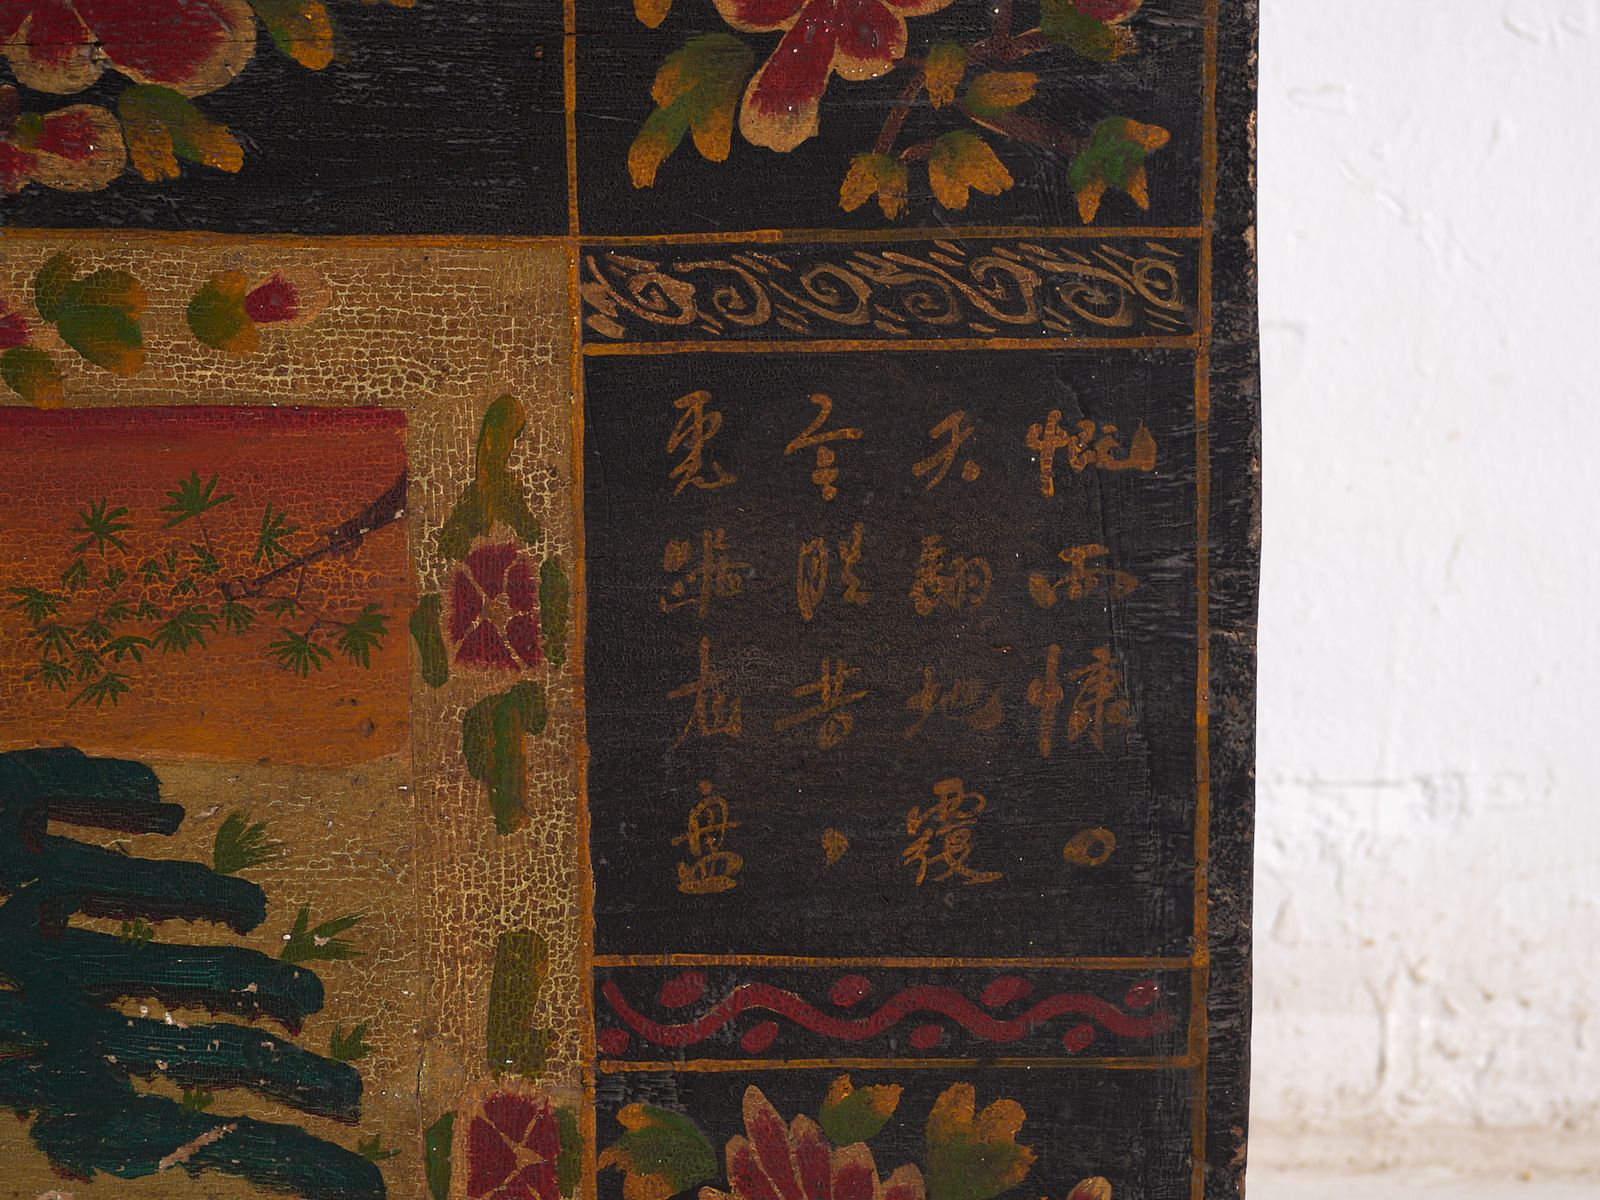 虎踞龙盘
今胜昔，
天翻地覆
慨而慷。